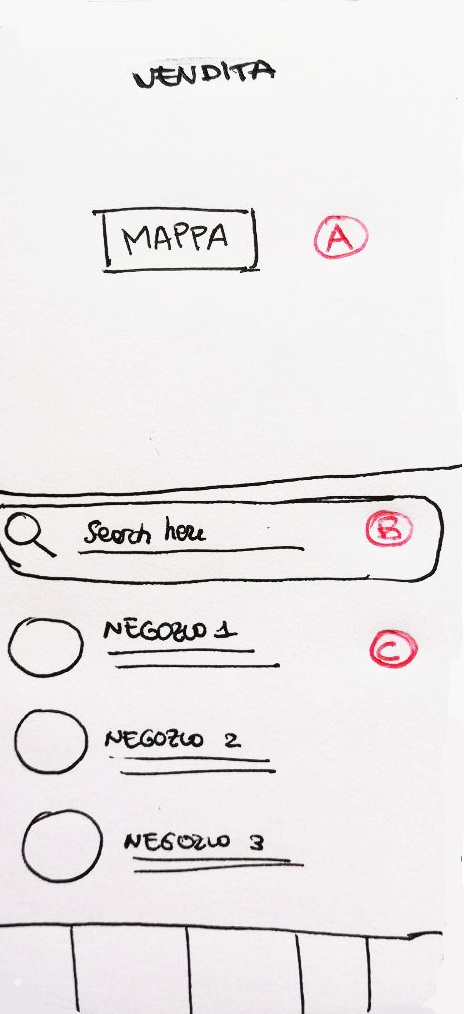 VENDITA
MAPPA A
Search here B
NEGOZIO 1 C
NEGOZIO 2
NEGOZIO 3